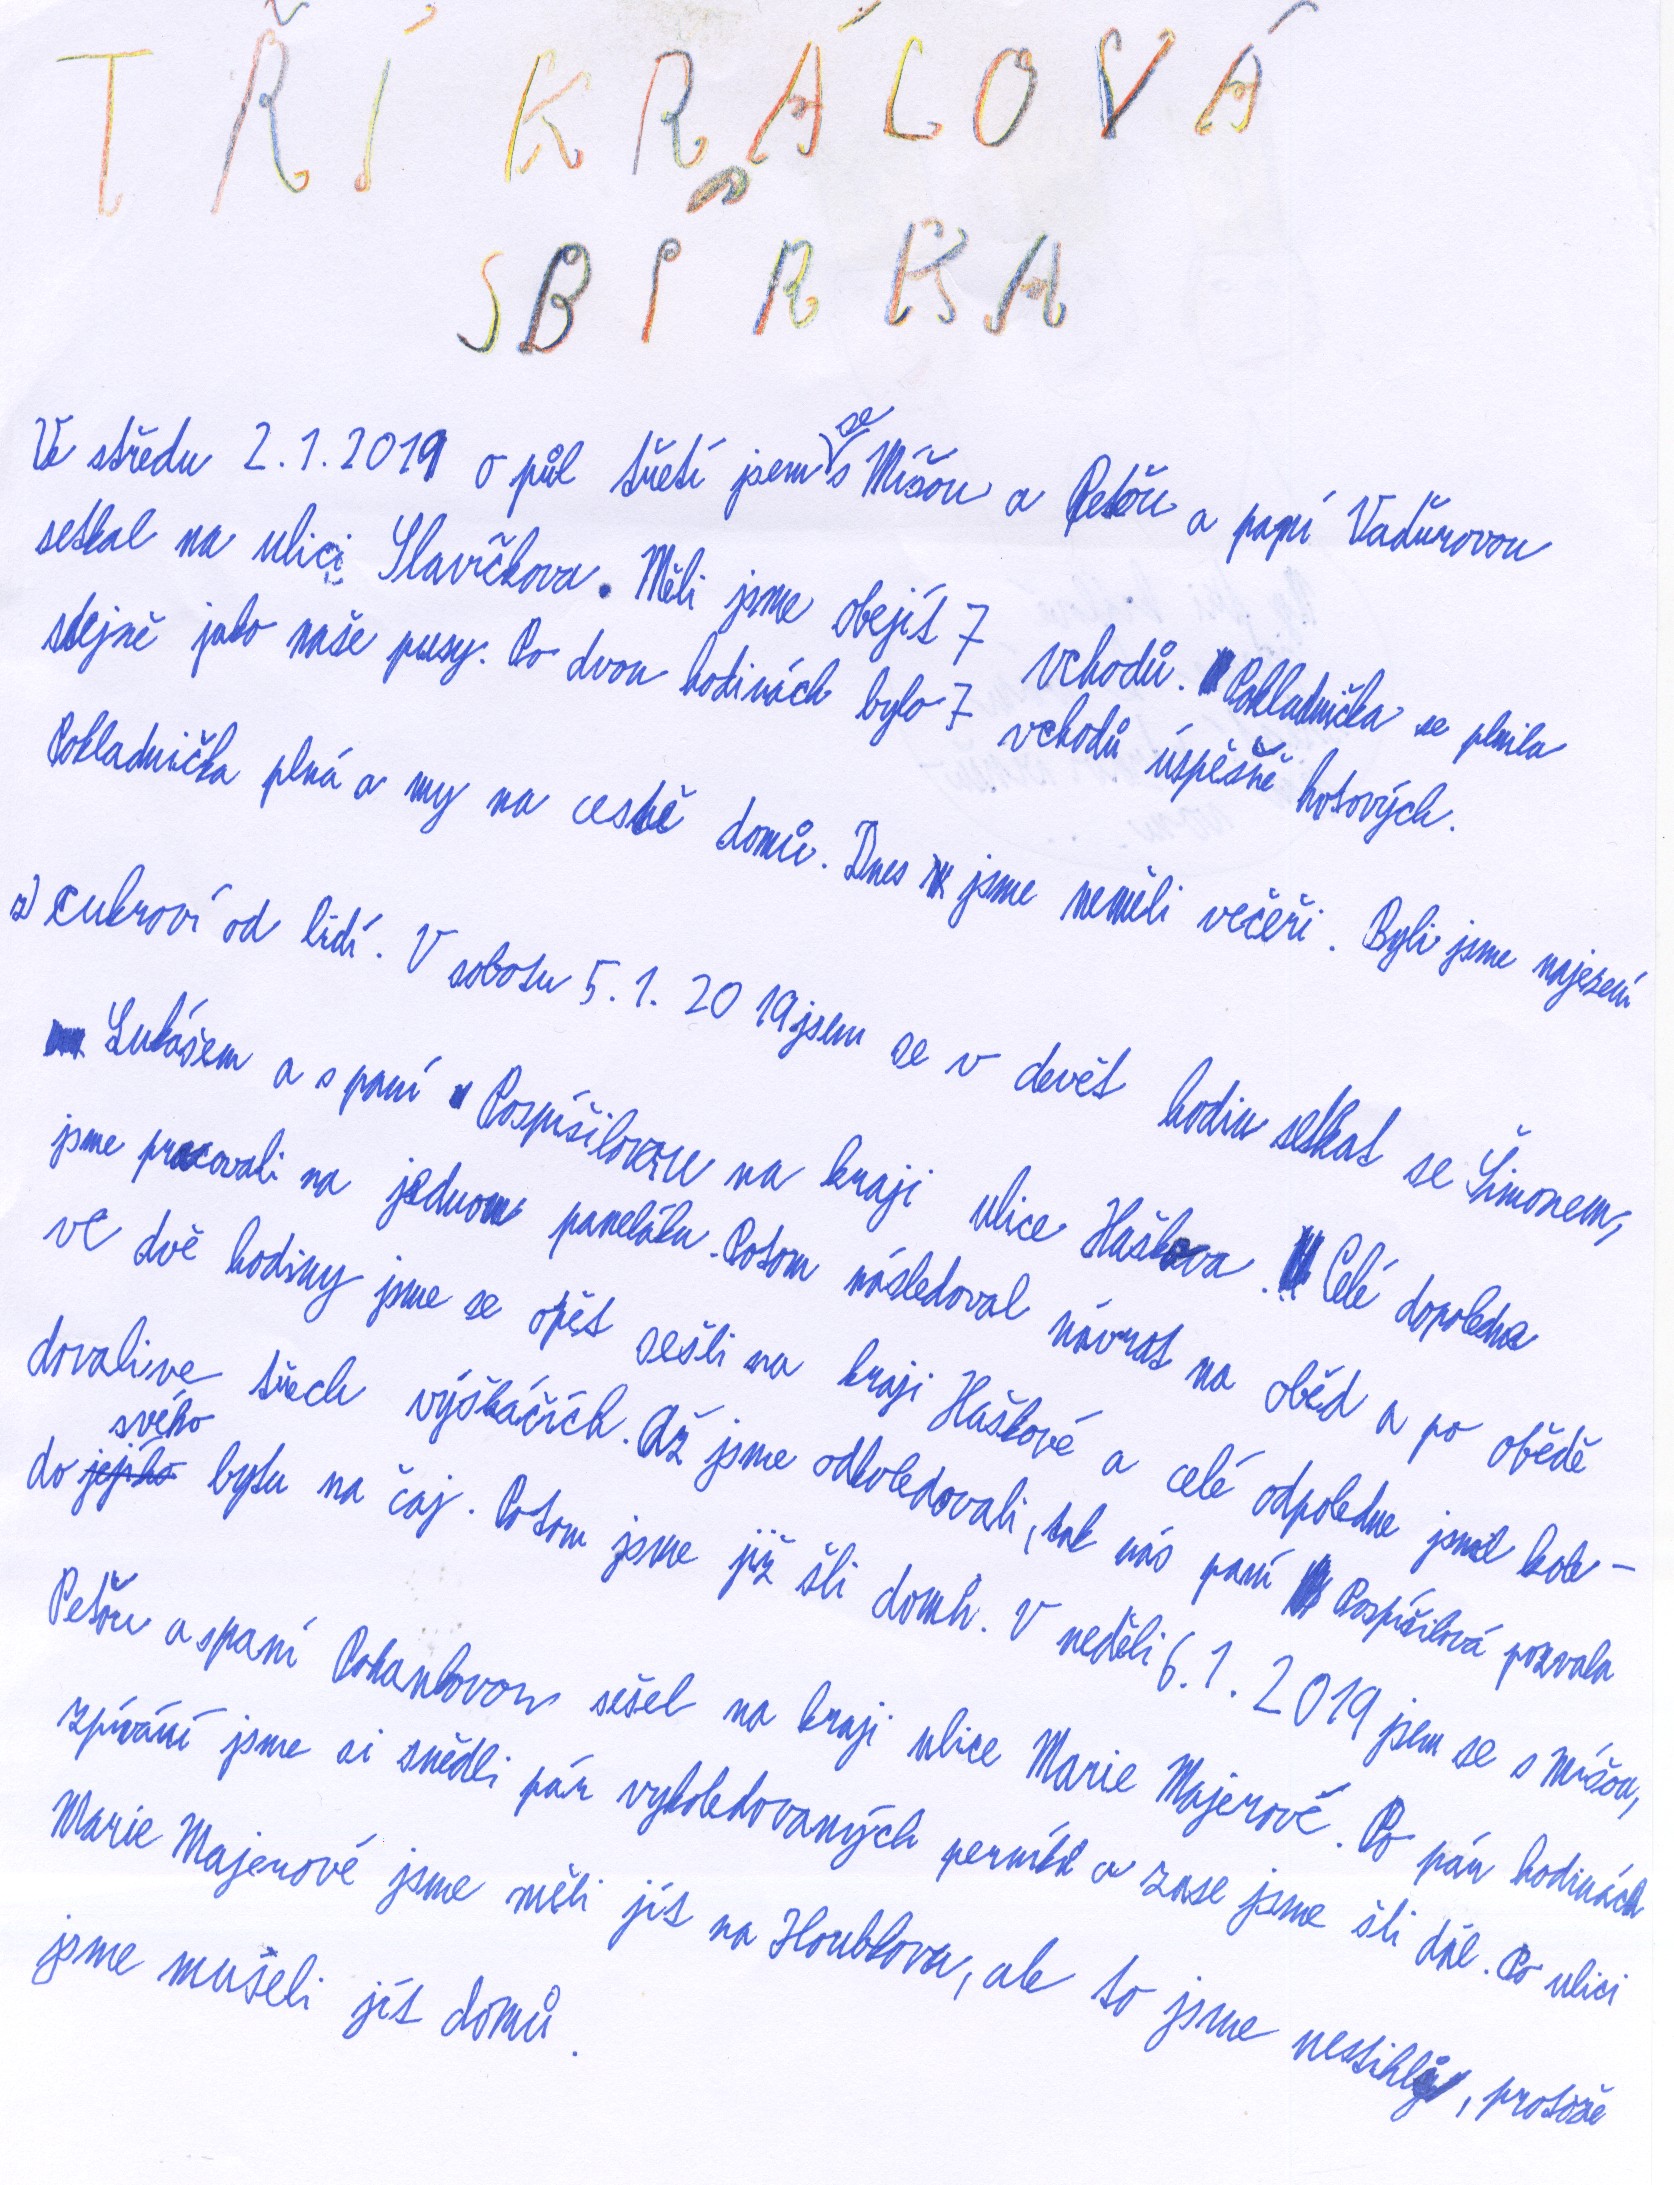 TŘÍKRÁLOVÁ
SBÍRKA
Ve středu 2.1.2019 o půl třetí jsem se s Míšou a Petrou a paní Vaďurovou
setkal na ulici Slavíčkova. Měli jsme obejít 7 vchodů. Pokladnička se plnila
stejně jako naše pusy. Po dvou hodinách bylo 7 vchodů úspěšně hotových.
Pokladnička plná a my na cestě domů. Dnes jsme neměli večeři. Byli jsme najezení
z) cukroví od lidí. V sobotu 5.1.2019 jsem se v devět hodin setkat se Šimonem,
Lukášem a s paní Pospíšilovou na kraji ulice Haškova. Celé dopoledne
jsme pracovali na jednom paneláku. Potom následoval návrat na oběd a po obědě
ve dvě hodiny jsme se opět sešli na kraji Haškové a celé odpoledne jsme kole-
dovali ve třech výškáčích. Až jsme odkoledovali, tak nás paní Pospíšilová pozvala
do jejího svého bytu na čaj. Potom jsme již šli domů. V neděli 6.1.2019 jsem se s Míšou,
Petrou a s paní sešel na kraji ulice Marie Majerové. Po pár hodinách
zpívání jsme si snědli pár vykoledovaných perníků a zase jsme šli dál. Po ulici
Marie Majerové jsme měli jít na Houbkova, ale to jsme nestihly, protože
jsme mušeli jít domů.